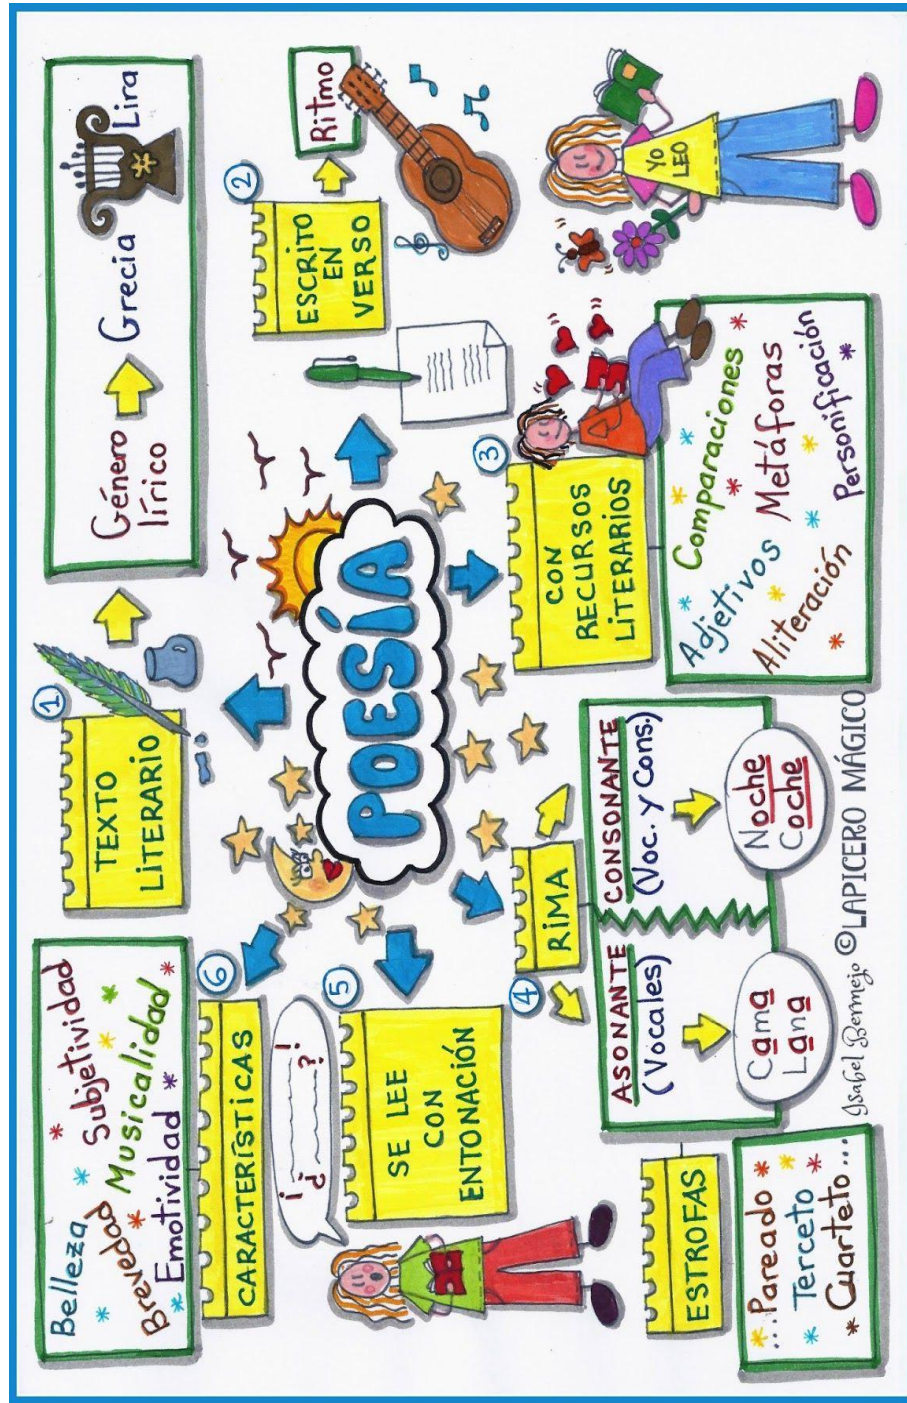 POESÍA
1
TEXTO
LITERARIO
Género
lírico
Grecia
Lira
2
ESCRITO
EN
VERSO
Ritmo
3
CON
RECURSOS
LITERARIOS
Comparaciones
Adjetivos
Metáforas
Aliteración
Personificación
YO
LEO
4
RIMA
ASONANTE
(Vocales)
Cama
Lana
CONSONANTE
(Voc. y Cons.)
Noche
Coche
ESTROFAS
...Pareado
Terceto
Cuarteto...
5
SE LEE
CON
ENTONACIÓN
¡ !
¿ ?
6
CARACTERÍSTICAS
Belleza
Subjetividad
Brevedad
Musicalidad
Emotividad
Isabel Bermejo ©LAPICERO MÁGICO